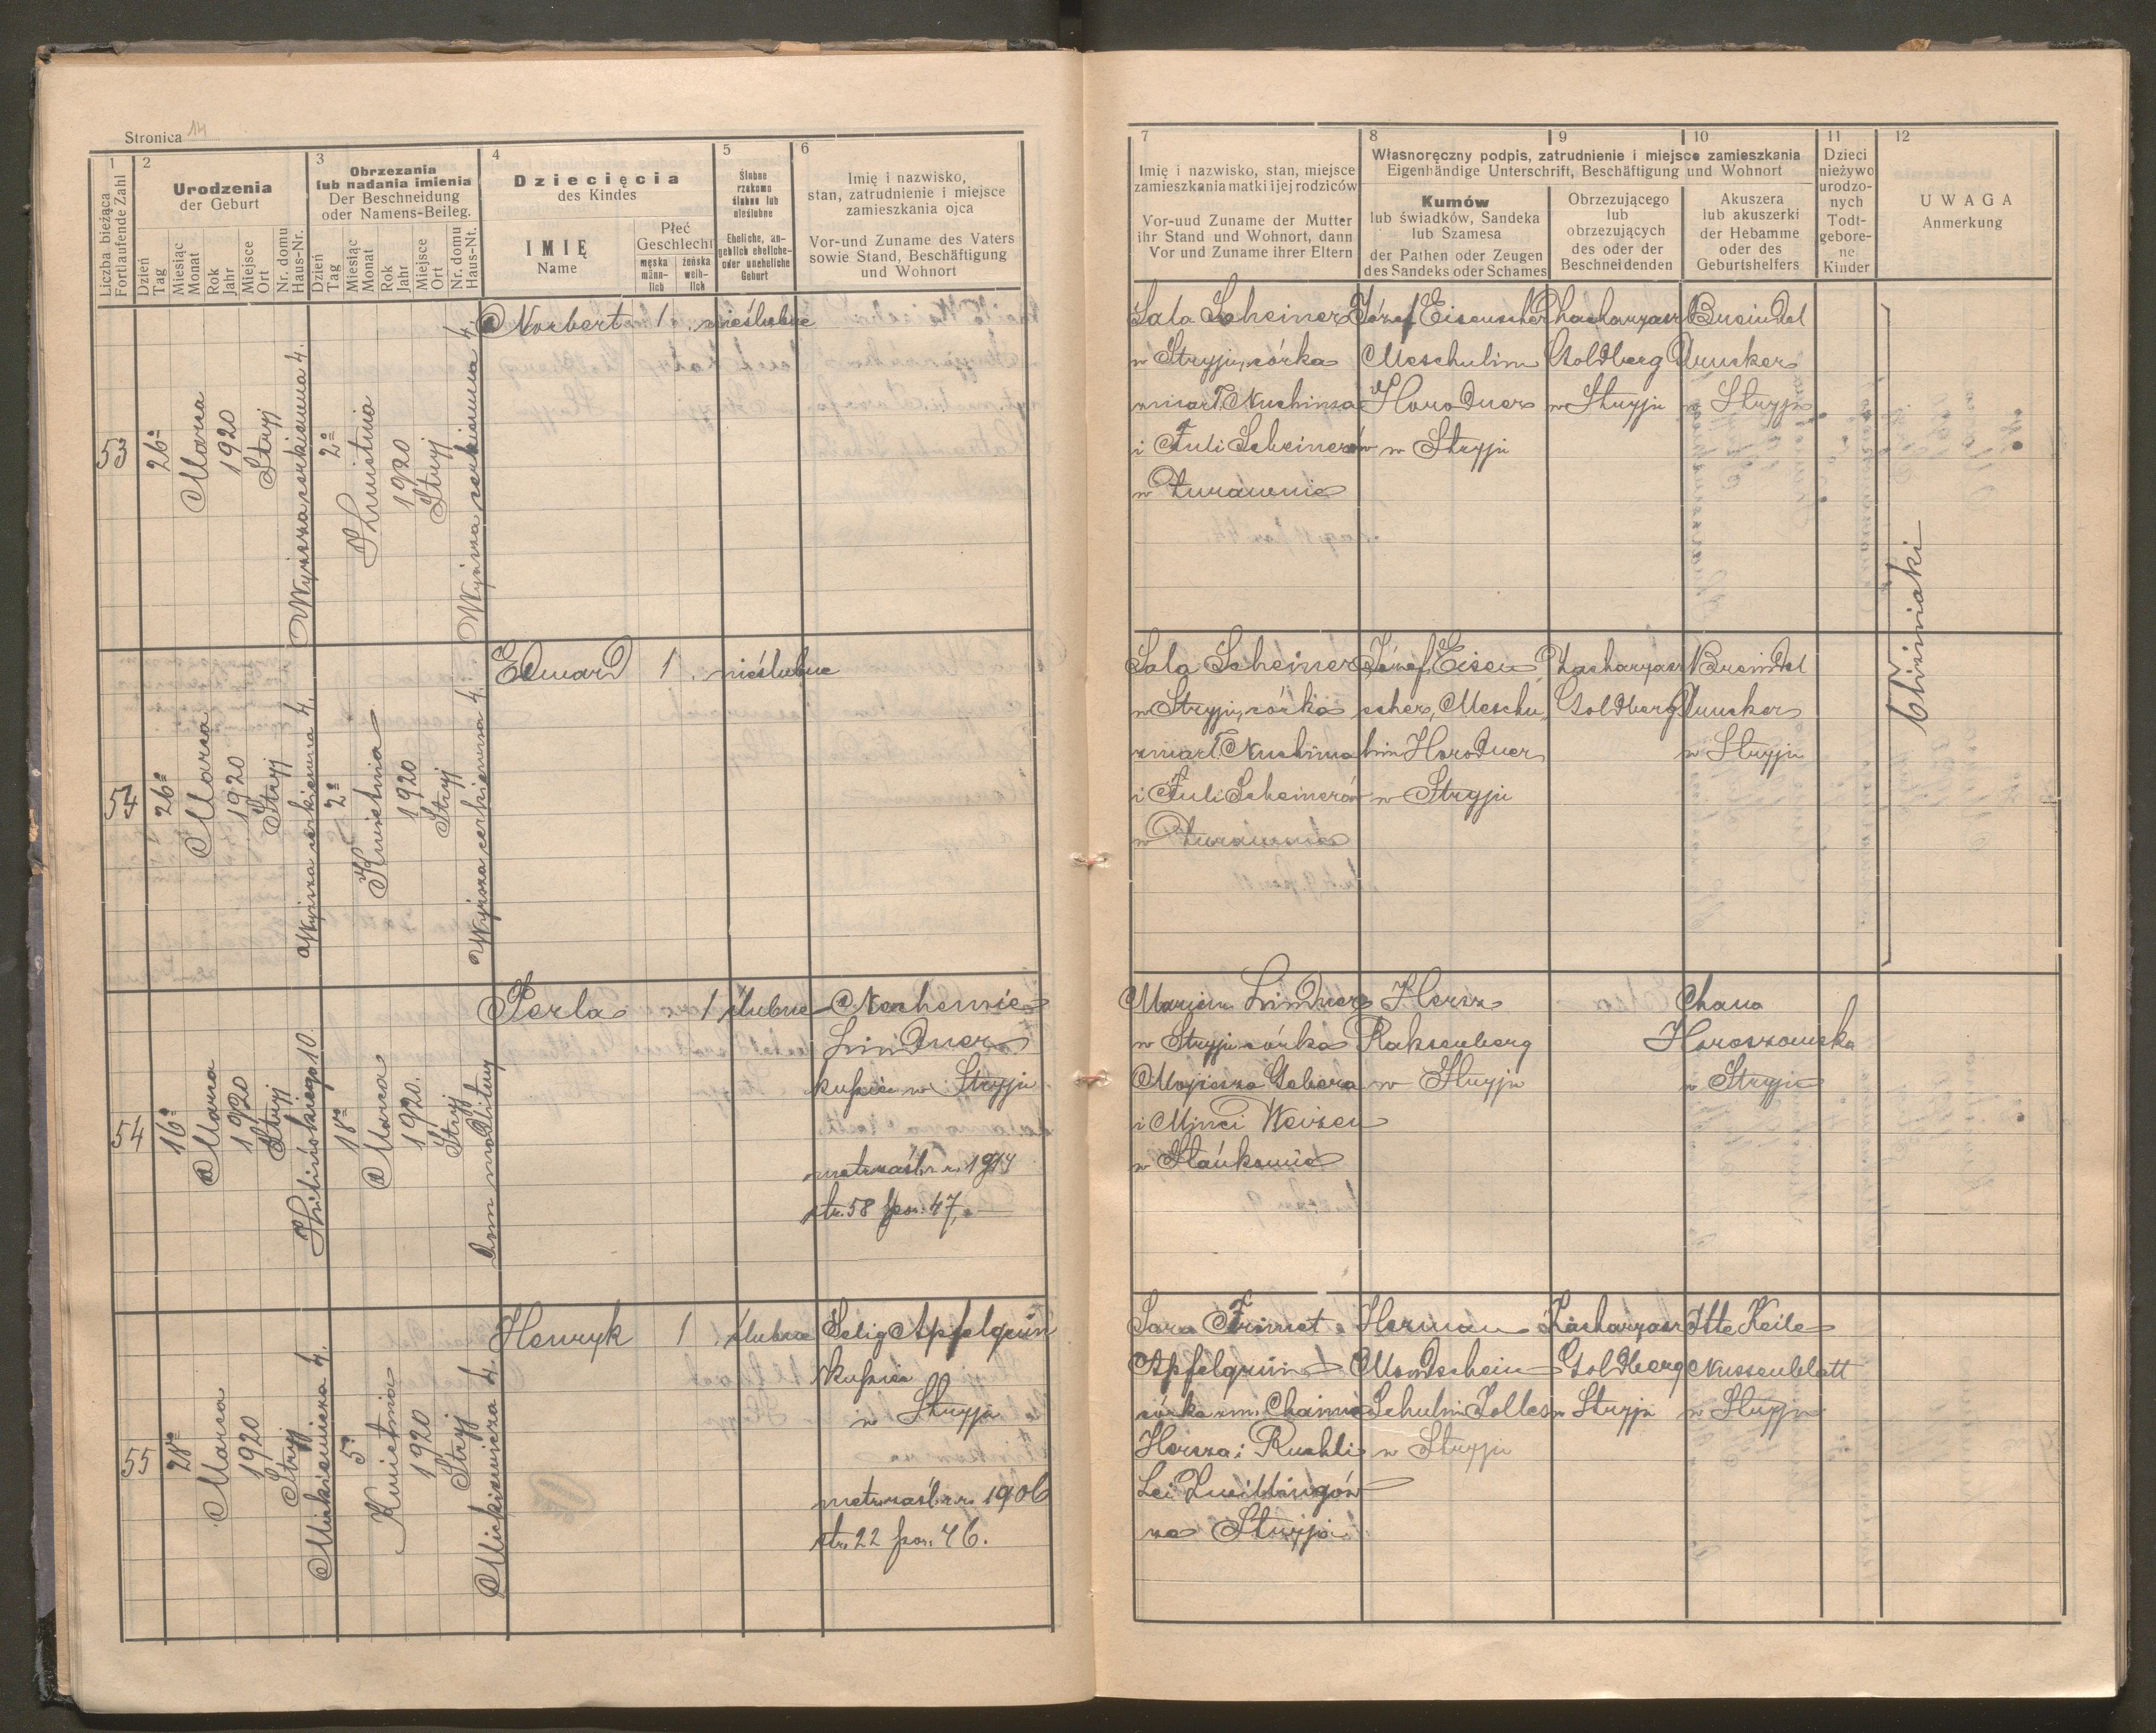 Stronica 14
1
2
3
4
5
6
Liczba bieżąca
Fortlaufende Zahl
Urodzenia
der Geburt
Obrzezania
lub nadania imienia
Der Beschneidung
oder Namens-Beileg.
Dziecięcia
des Kindes
Ślubne
rzekomo
ślubne lub
nieślubne
Eheliche, an-
geblich eheliche-
oder uneheliche
Geburt
Imię i nazwisko,
stan, zatrudnienie i miejsce
zamieszkania ojca
Vor-und Zuname des Vaters
sowie Stand, Beschäftigung
und Wohnort
Dzień
Tag
Miesiąc
Monat
Rok
Jahr
Miejsce
Ort
Nr. domu
Haus-Nr.
Dzień
Tag
Miesiąc
Monat
Rok
Jahr
Miejsce
Ort
Nr. domu
Haus-Nt.
IMIĘ
Name
Płeć
Geschlecht
męska
männ-
lich
żeńska
weib-
lich
53
26
Marca
1920
Stryj
Wyższa cerkiewna 4.
2
Kwietnia
1920
Stryj
Wyższa cerkiewna 4.
Norbert
1
nieślubne
54
26
Marca
1920
Stryj
Wyższa cerkiewna 4.
2
Kwietnia
1920
Stryj
Wyższa cerkiewna 4.
Edward
1
nieślubne
54
16
Marca
1920
Stryj
Kilińskiego 10
18
Marca
1920.
Stryj
Dom modlitwy
Perla
1
ślubne
Nechemie
Lindner
kupiec w Stryju
metr. zaśl. z r. 1914
str. 58 poz. 47.
55
28
Marca
1920
Stryj
Mickiewicza 4.
5
Kwietnia
1920
Stryj
Mickiewicza 4.
Henryk
1
ślubne
Selig Apfelgrün
kupiec
w Stryju
metr. zaśl. z r. 1906
str. 22 poz. 46.
7
8
9
10
11
12
Imię i nazwisko, stan, miejsce
zamieszkania matki i jej rodziców
Vor-uud Zuname der Mutter
ihr Stand und Wohnort, dann
Vor und Zuname ihrer Eltern
Własnoręczny podpis, zatrudnienie i miejsce zamieszkania
Eigenhändige Unterschrift, Beschäftigung und Wohnort
Kumów
lub świadków, Sandeka
lub Szamesa
der Pathen oder Zeugen
des Sandeks oder Schames
Obrzezującego
lub
obrzezujących
des oder der
Beschneidenden
Akuszera
lub akuszerki
der Hebamme
oder des
Geburtshelfers
Dzieci
nieżywo
urodzo-
nych
Todt-
gebore-
ne
Kinder
UWAGA
Anmerkung
Sala Scheiner
w Stryju, córka
zmarł. Nuchima
i Juli Scheinerów
w Żurawnie
Józef Eisenscher
Meschulim
Horodner
w Stryju
Zacharyasz
Goldberg
w Stryju
Breindel
Drucker
w Stryju
Bliźniaki
Sala Scheiner
w Stryju, córka
zmarł. Nuchima
i Juli Scheinerów
w Żurawnie
Józef Eisen
scher, Meschu
lim Horodner
w Stryju
Zacharyasz
Goldberg
Breindel
Drucker
w Stryju
Marjem Lindner
w Stryju córka
Mojżesza Gebera
i Minci Weizen
w Stańkowie
Hersz
Raksenberg
w Stryju
Chana
Horoszowska
w Stryju
Sara Frimet
Apfelgrün
córka zm. Chaima
Hersza i Ruchli
Lei Zwillingów
ze Stryja
Herman
Mondschein
Schulim Zolles
w Stryju
Zacharyasz
Goldberg
w Stryju
Itte Keile
Nussenblatt
w Stryju